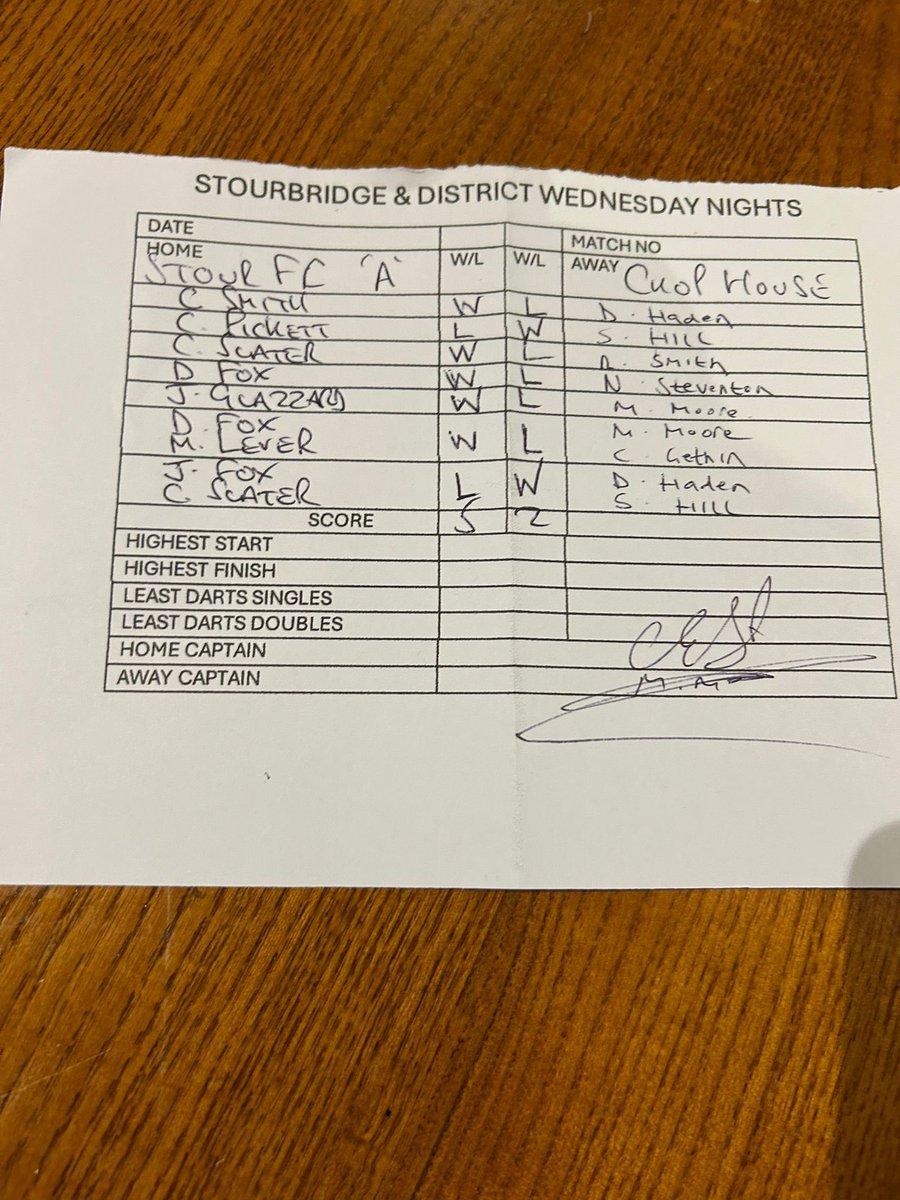 STOURBRIDGE & DISTRICT WEDNESDAY NIGHTS
DATE MATCH NO
HOME STOUR FC 'A' W/L W/L AWAY CHOP HOUSE
C SMITH W L D. Haden
C. PICKETT L W S. HILL
C. SLATER W L R. Smith
D FOX W L N. Steventon
J. GLAZZARD W L M. Moore
D. FOX M. Moore
M. LEVER W L C. Gethin
J. FOX D. Haden
C. SLATER L W S. HILL
SCORE 5 2
HIGHEST START
HIGHEST FINISH
LEAST DARTS SINGLES
LEAST DARTS DOUBLES
HOME CAPTAIN
AWAY CAPTAIN